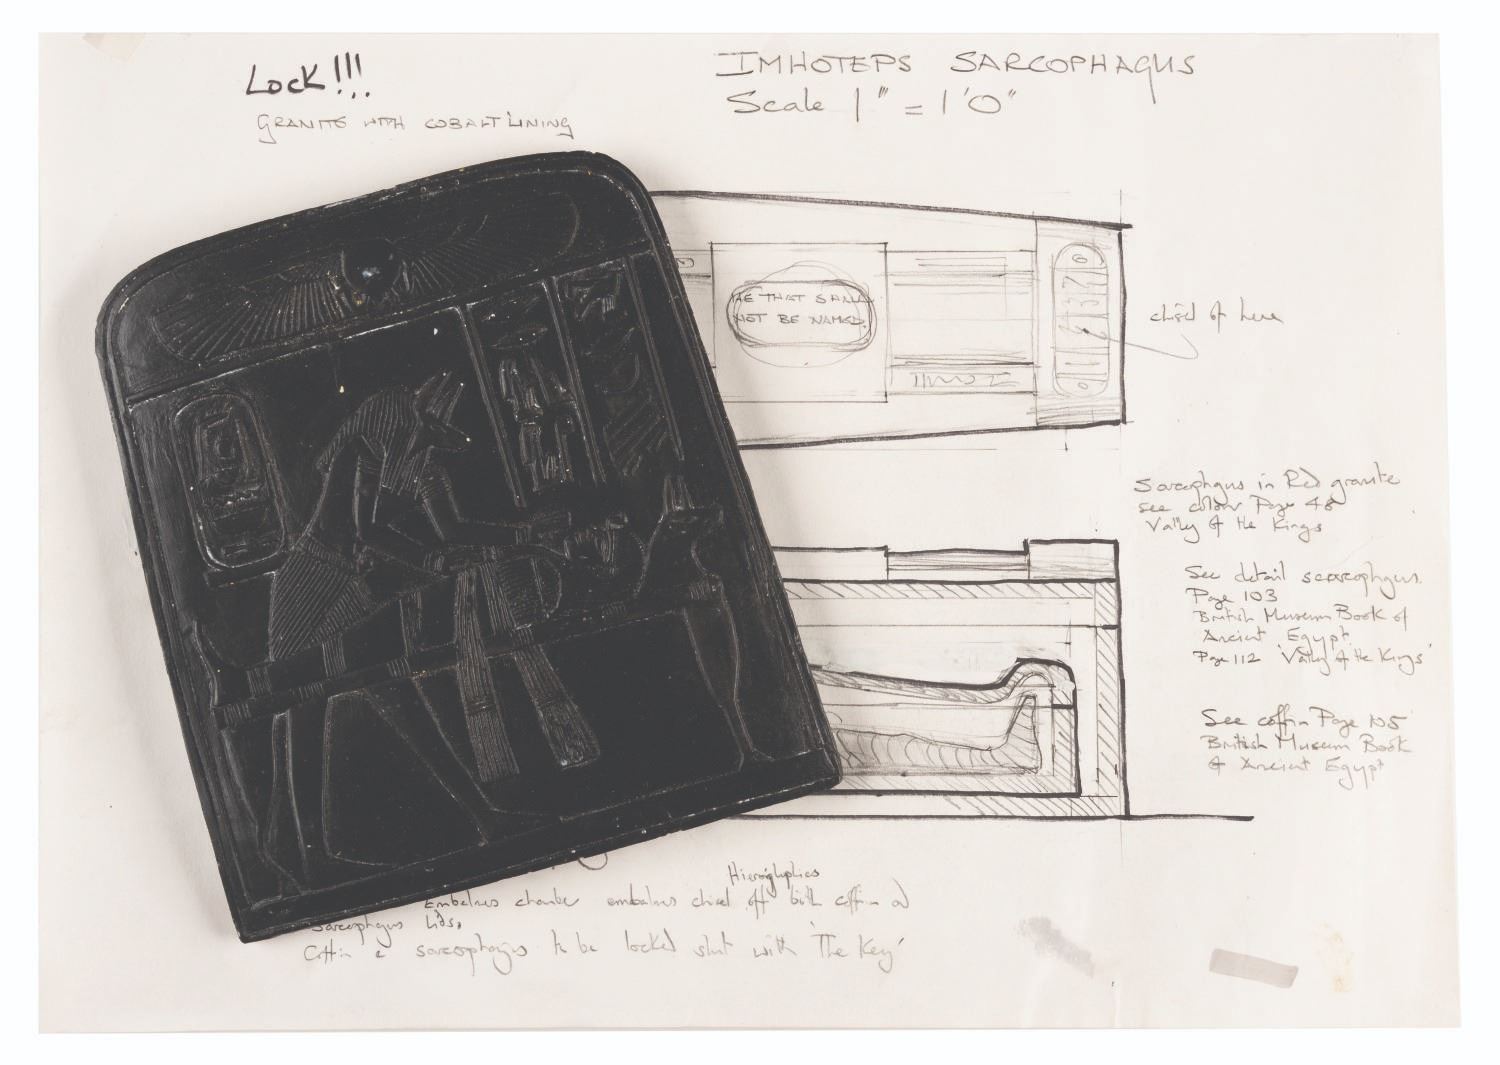 Lock!!!
GRANITE WITH COBALT LINING
IMHOTEPS SARCOPHAGUS
Scale 1" = 1'0"
HE THAT SHALL
NOT BE NAMED.
chisel of here
Sarcophagus in Red granite
see colour Page 48
Valley of the Kings
See detail
Page 103
British Museum Book of
Ancient Egypt
Page 112 'Valley of the Kings'
See coffin Page 105
British Museum Book
of Ancient Egypt
Hieroglyphics
chamber embalmers chisel off both coffin
Sarcophagus Lids.
Coffin & sarcophagus to be locked shut with 'The Key'